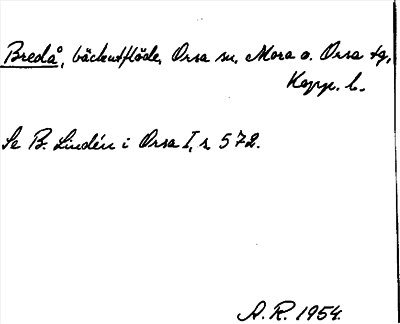 Bredå, bäckutflöde, Orsa sn, Mora o. Orsa tg,
Kopp. l.
Se B. Lindén i Orsa I, s 572.
A. R. 1954.